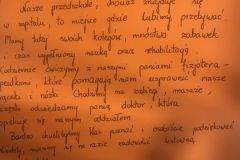 Nasze przedszkole, znajduje się
w szpitalu, to miejsce gdzie lubimy przebywać.
Mamy tutaj swoich kolegów, mnóstwo zabawek
i czas wypełniony nauką oraz rehabilitacją.
Codziennie ćwiczymy z naszymi paniami fizjotera-
peutkami, które pomagają nam usprawnić nasze
rączki i nóżki. Chodzimy na zabiegi, masaże,
często odwiedzamy panią doktor, która
opiekuje się naszym oddziałem.
Bardzo chcielibyśmy Was poznać i osobiście podziękować
musimy się na razie zadowolić listowną